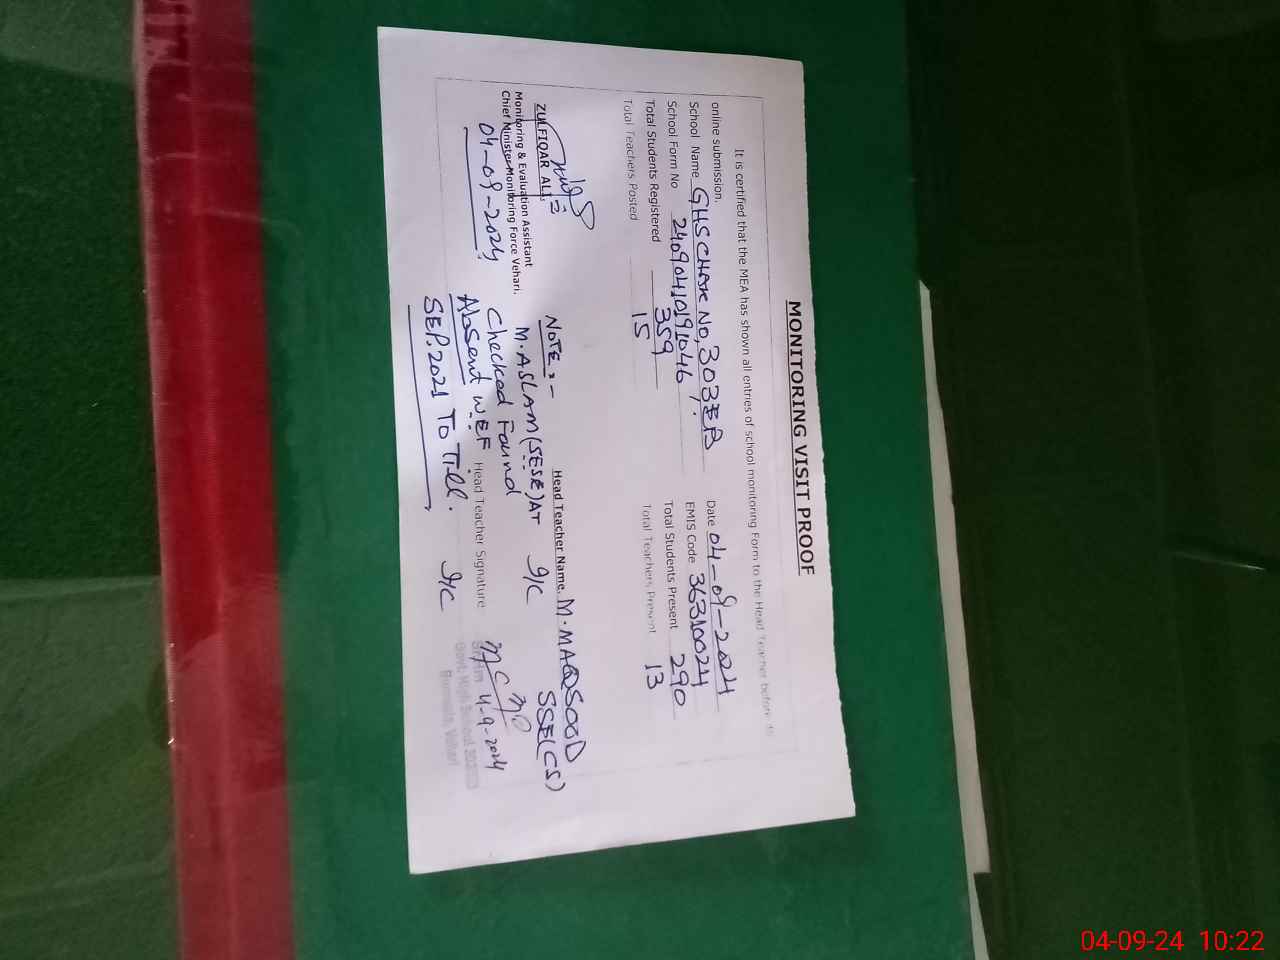 MONITORING VISIT PROOF
It is certified that the MEA has shown all entries of school monitoring Form to the Head Teacher before its
online submission.
Date 04-09-2024
School Name GHS CHAK No, 303EB
EMIS Code 36310024
School Form No 24090410191046
Total Students Present 290
Total Students Registered 359
Total Teachers Present 13
Total Teachers Posted 15
ZULFIQAR ALI
Monitoring & Evaluation Assistant
Chief Minister Monitoring Force Vehari.
04-09-2024
Head Teacher Name. M. MAQSOOD
SSE(CS)
I/C
NOTE:-
M. ASLAM (SESE) AT
Checked Found
Absent W.E.F
SEP. 2021 To Till.
Head Teacher Signature:
4-9-2024
I/C
Govt. High School 303
Burewala, Vehari
04-09-24 10:22